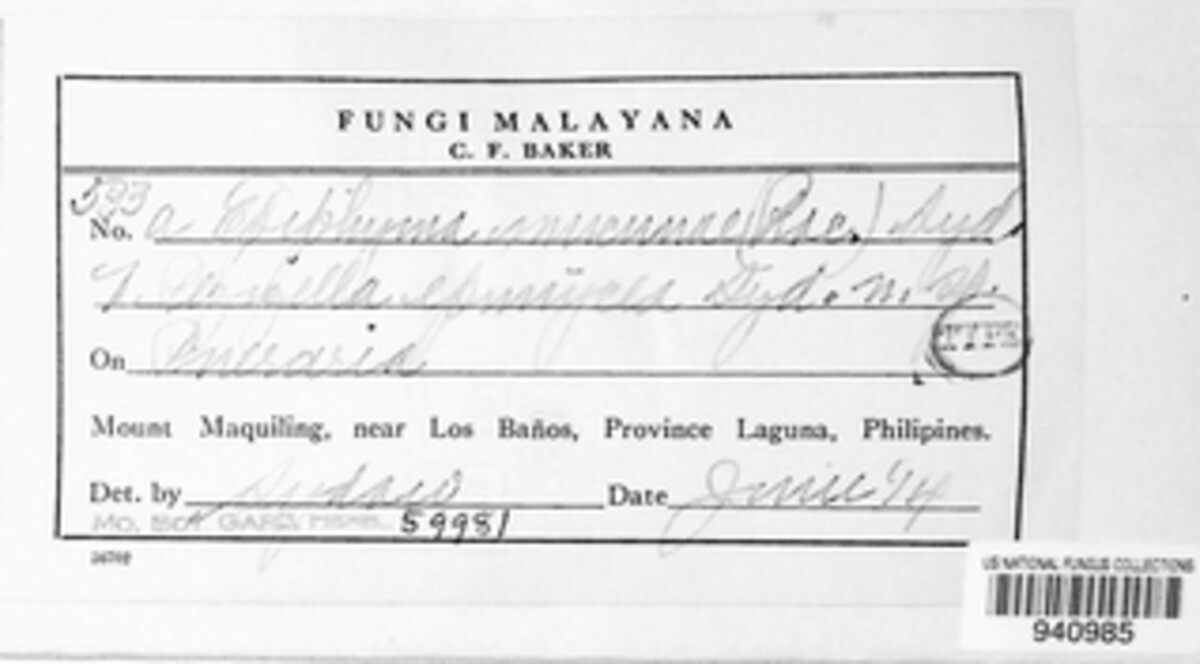 FUNGI MALAYANA
C. F. BAKER
593
No. a mucunae (Rac.) Syd.
Syd. n. sp.
TYPE
On Pueraria
Mount Maquiling, near Los Baños, Province Laguna, Philipines.
Det. by Sydow Date June '14
MO. BOT. GARD. HERB. 59981
US NATIONAL FUNGUS COLLECTIONS
940985